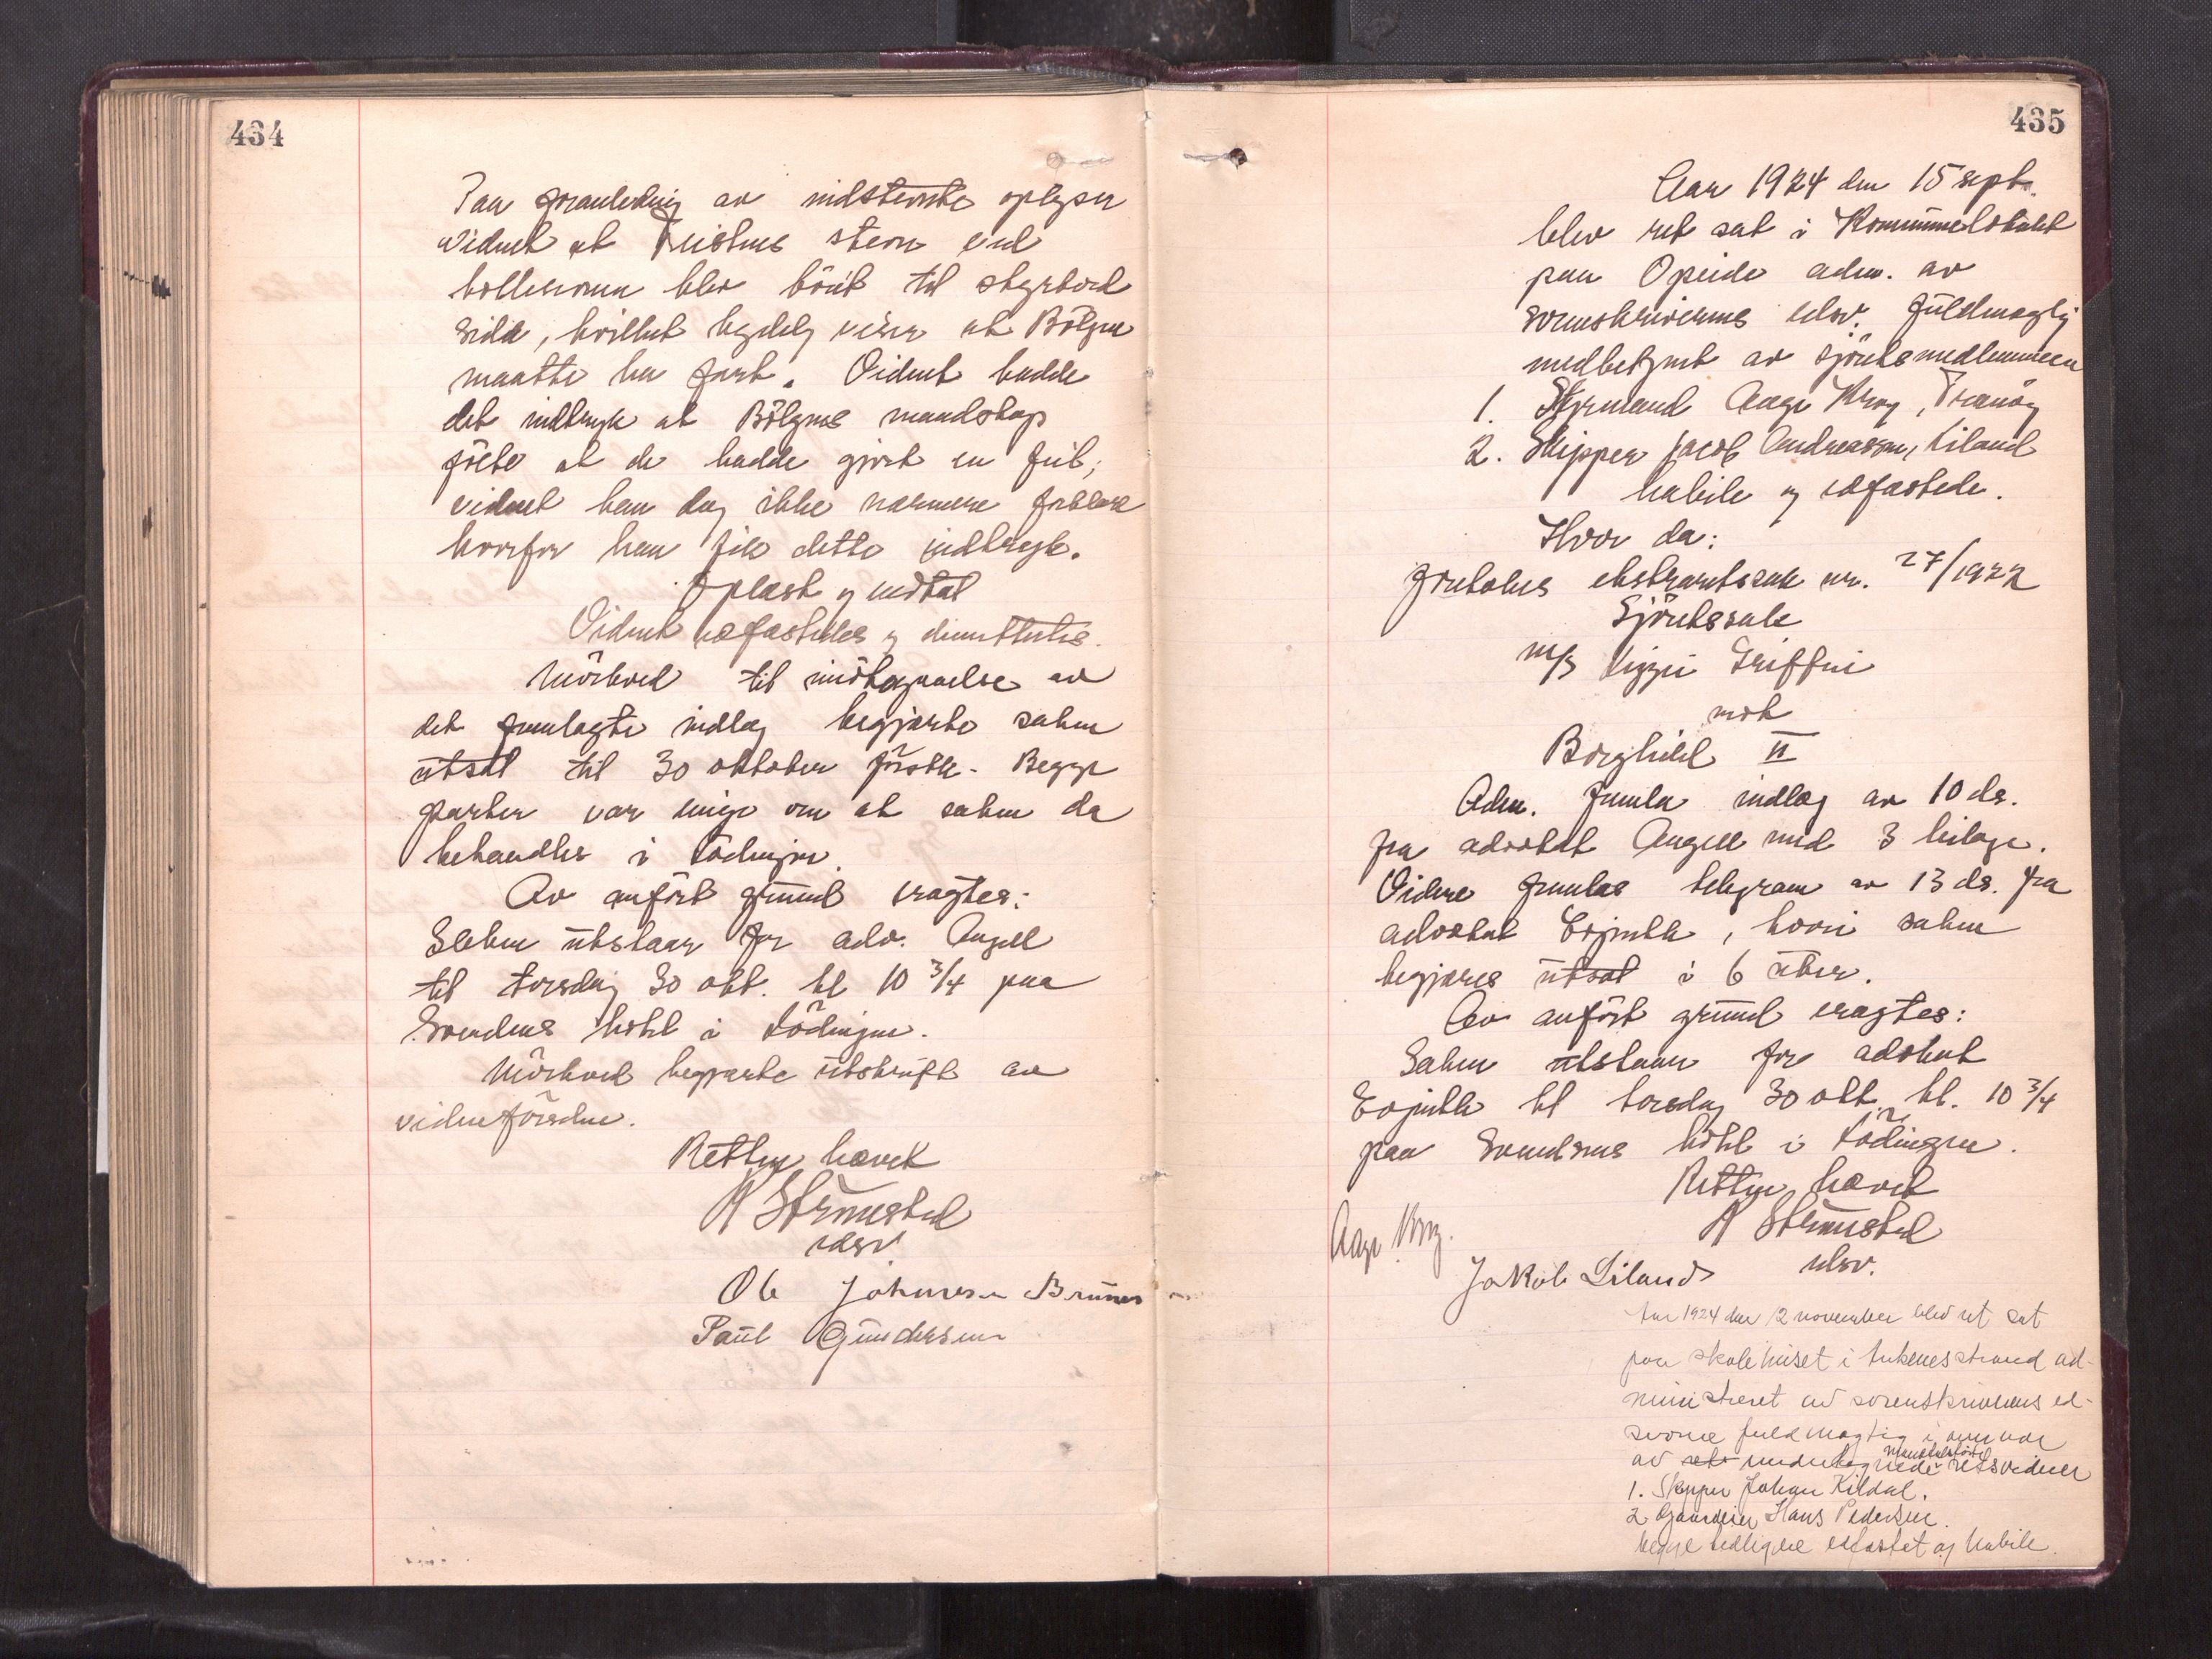 434
Paa foranledning av indstevnte oplyser
vidnet at Feistens stevn ved
kollisionen blev böiet til styrbord
side, hvilket tydelig viser at Bölgen
maatte ha fart. Vidnet hadde
det indtryk at Bölgens mandskap
fölte at de hadde gjort en feil;
vidnet kan dog ikke nærmere forklare
hvorfor han fik dette indtryk.
Oplæst og vedtat
Vidnet edfæstedes og dimitteredes.
Mörkved til imötegaaelse av
det fremlagte indlæg begjærte saken
utsat til 30 oktober förstk. Begge
parter var enige om at saken da
behandles i Lödingen.
Av anfört grund eragtes:
Saken utstaar for adv. Angell
til torsdag 30 okt. kl 10 3/4 paa
Svendsens hotel i Lödingen.
Mörkved begjærte utskrift av
vidneförselen.
Retten hævet
A Strömsted
edsv
Ole Johnsen
Paul Gundersen
435
Aar 1924 den 15 sept.
blev ret sat i Kommunelokalet
paa Opeide adm. av
sorenskriverens edsv. fuldmægtig
medbetjent av sjöretsmedlemmene
1. Styrmand Aage Krog, Tranöy
2. Skipper Jacob Andreassen, Liland
habile og edfæstede.
Hvor da:
Foretokes ekstraretssak nr. 27/1922
Sjöretssak
m/s Lizzie Griffin
mot
Borghild II
Adm. fremla indlæg av 10 ds.
fra advokat Angell med 3 bilage.
Videre fremlaes telegram av 13 ds. fra
advokat , hvori saken
begjæres utsat i 6 uker.
Av anfört grund eragtes:
Saken utstaar for advokat
til torsdag 30 okt. kl. 10 3/4
paa Svendsens hotel i Lödingen.
Retten hævet
A Strömsted
edsv.
Aage Krog.
Jakob Liland
Aar 1924 den 12 november blev ret sat
paa skolehuset i ad-
ministreret av sorenskriverens ed-
svorne fuldmægtig i nærvær
av undertegnede retsvidner
1. Skipper Johan Kildal.
2 Gaardeier Hans Pedersen.
begge edfæstet og habile.